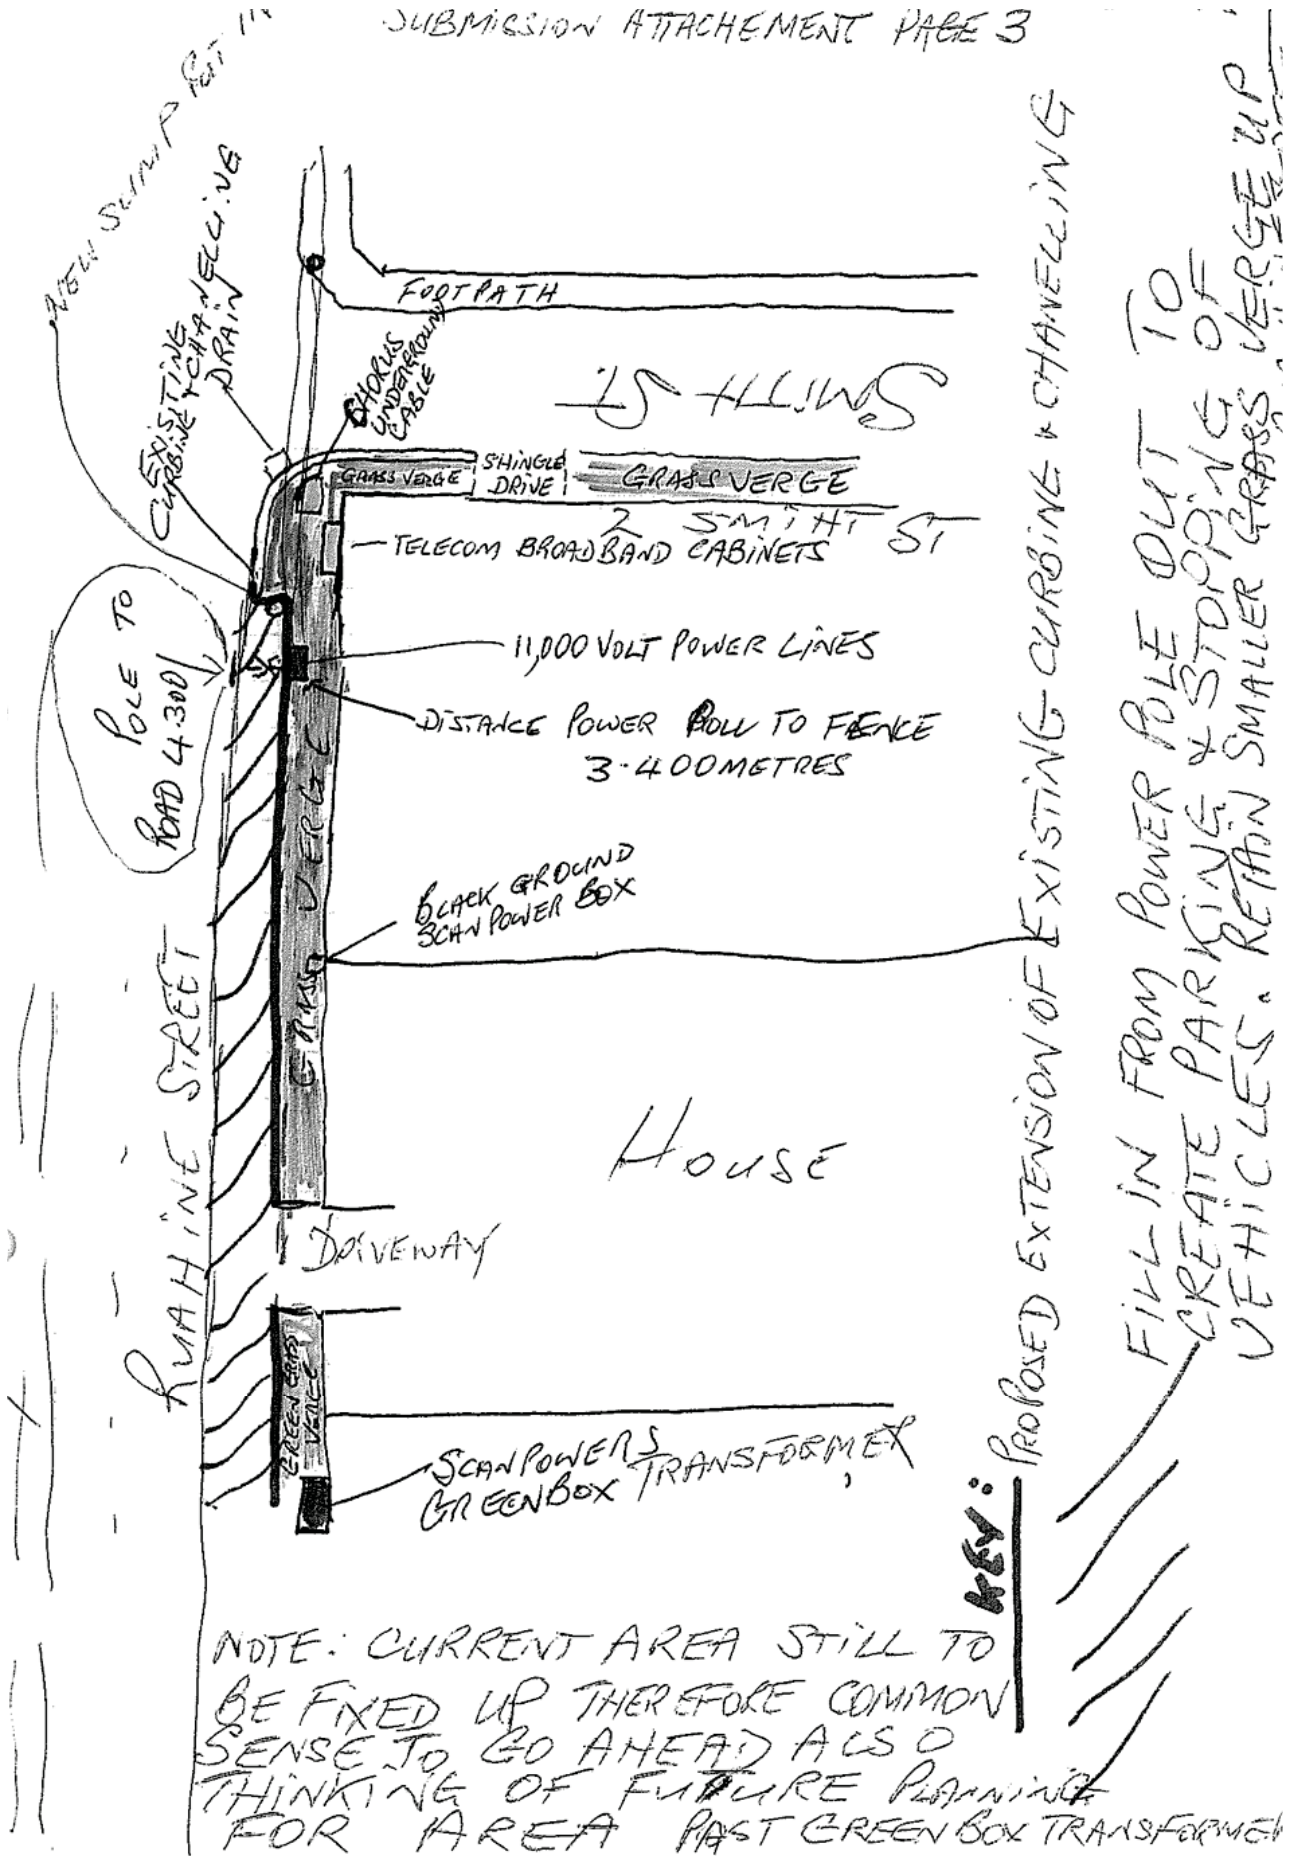 SUBMISSION ATTACHEMENT PAGE 3
NEW SUMP PUT IN
EXISTING
CURBING + CHANELLING
DRAIN
FOOTPATH
CHORUS
UNDERGROUND
CABLE
SMITH ST.
GRASS VERGE
SHINGLE
DRIVE
GRASS VERGE
2 SMIHT ST
TELECOM BROADBAND CABINETS
POLE TO
ROAD 4.300
11,000 VOLT POWER LINES
DISTANCE POWER POLL TO FEENCE
3.400 METRES
GRASS VERGE
BLACK GROUND
SCANPOWER BOX
RUAHINE STREET
HOUSE
DRIVEWAY
GREEN GRASS
VERGE
SCANPOWERS
GREENBOX TRANSFORMER
KEY:
PROPOSED EXTENSION OF EXISTING CURBING & CHANELLING
FILL IN FROM POWER POLE OUT TO
CREATE PARKING & STOPPING OF
VEHICLES. RETAIN SMALLER GRASS VERGE UP
NOTE: CURRENT AREA STILL TO
BE FIXED UP THEREFORE COMMON
SENSE TO GO AHEAD ALSO
THINKING OF FUTURE PLANNING
FOR AREA PAST GREENBOX TRANSFORMER